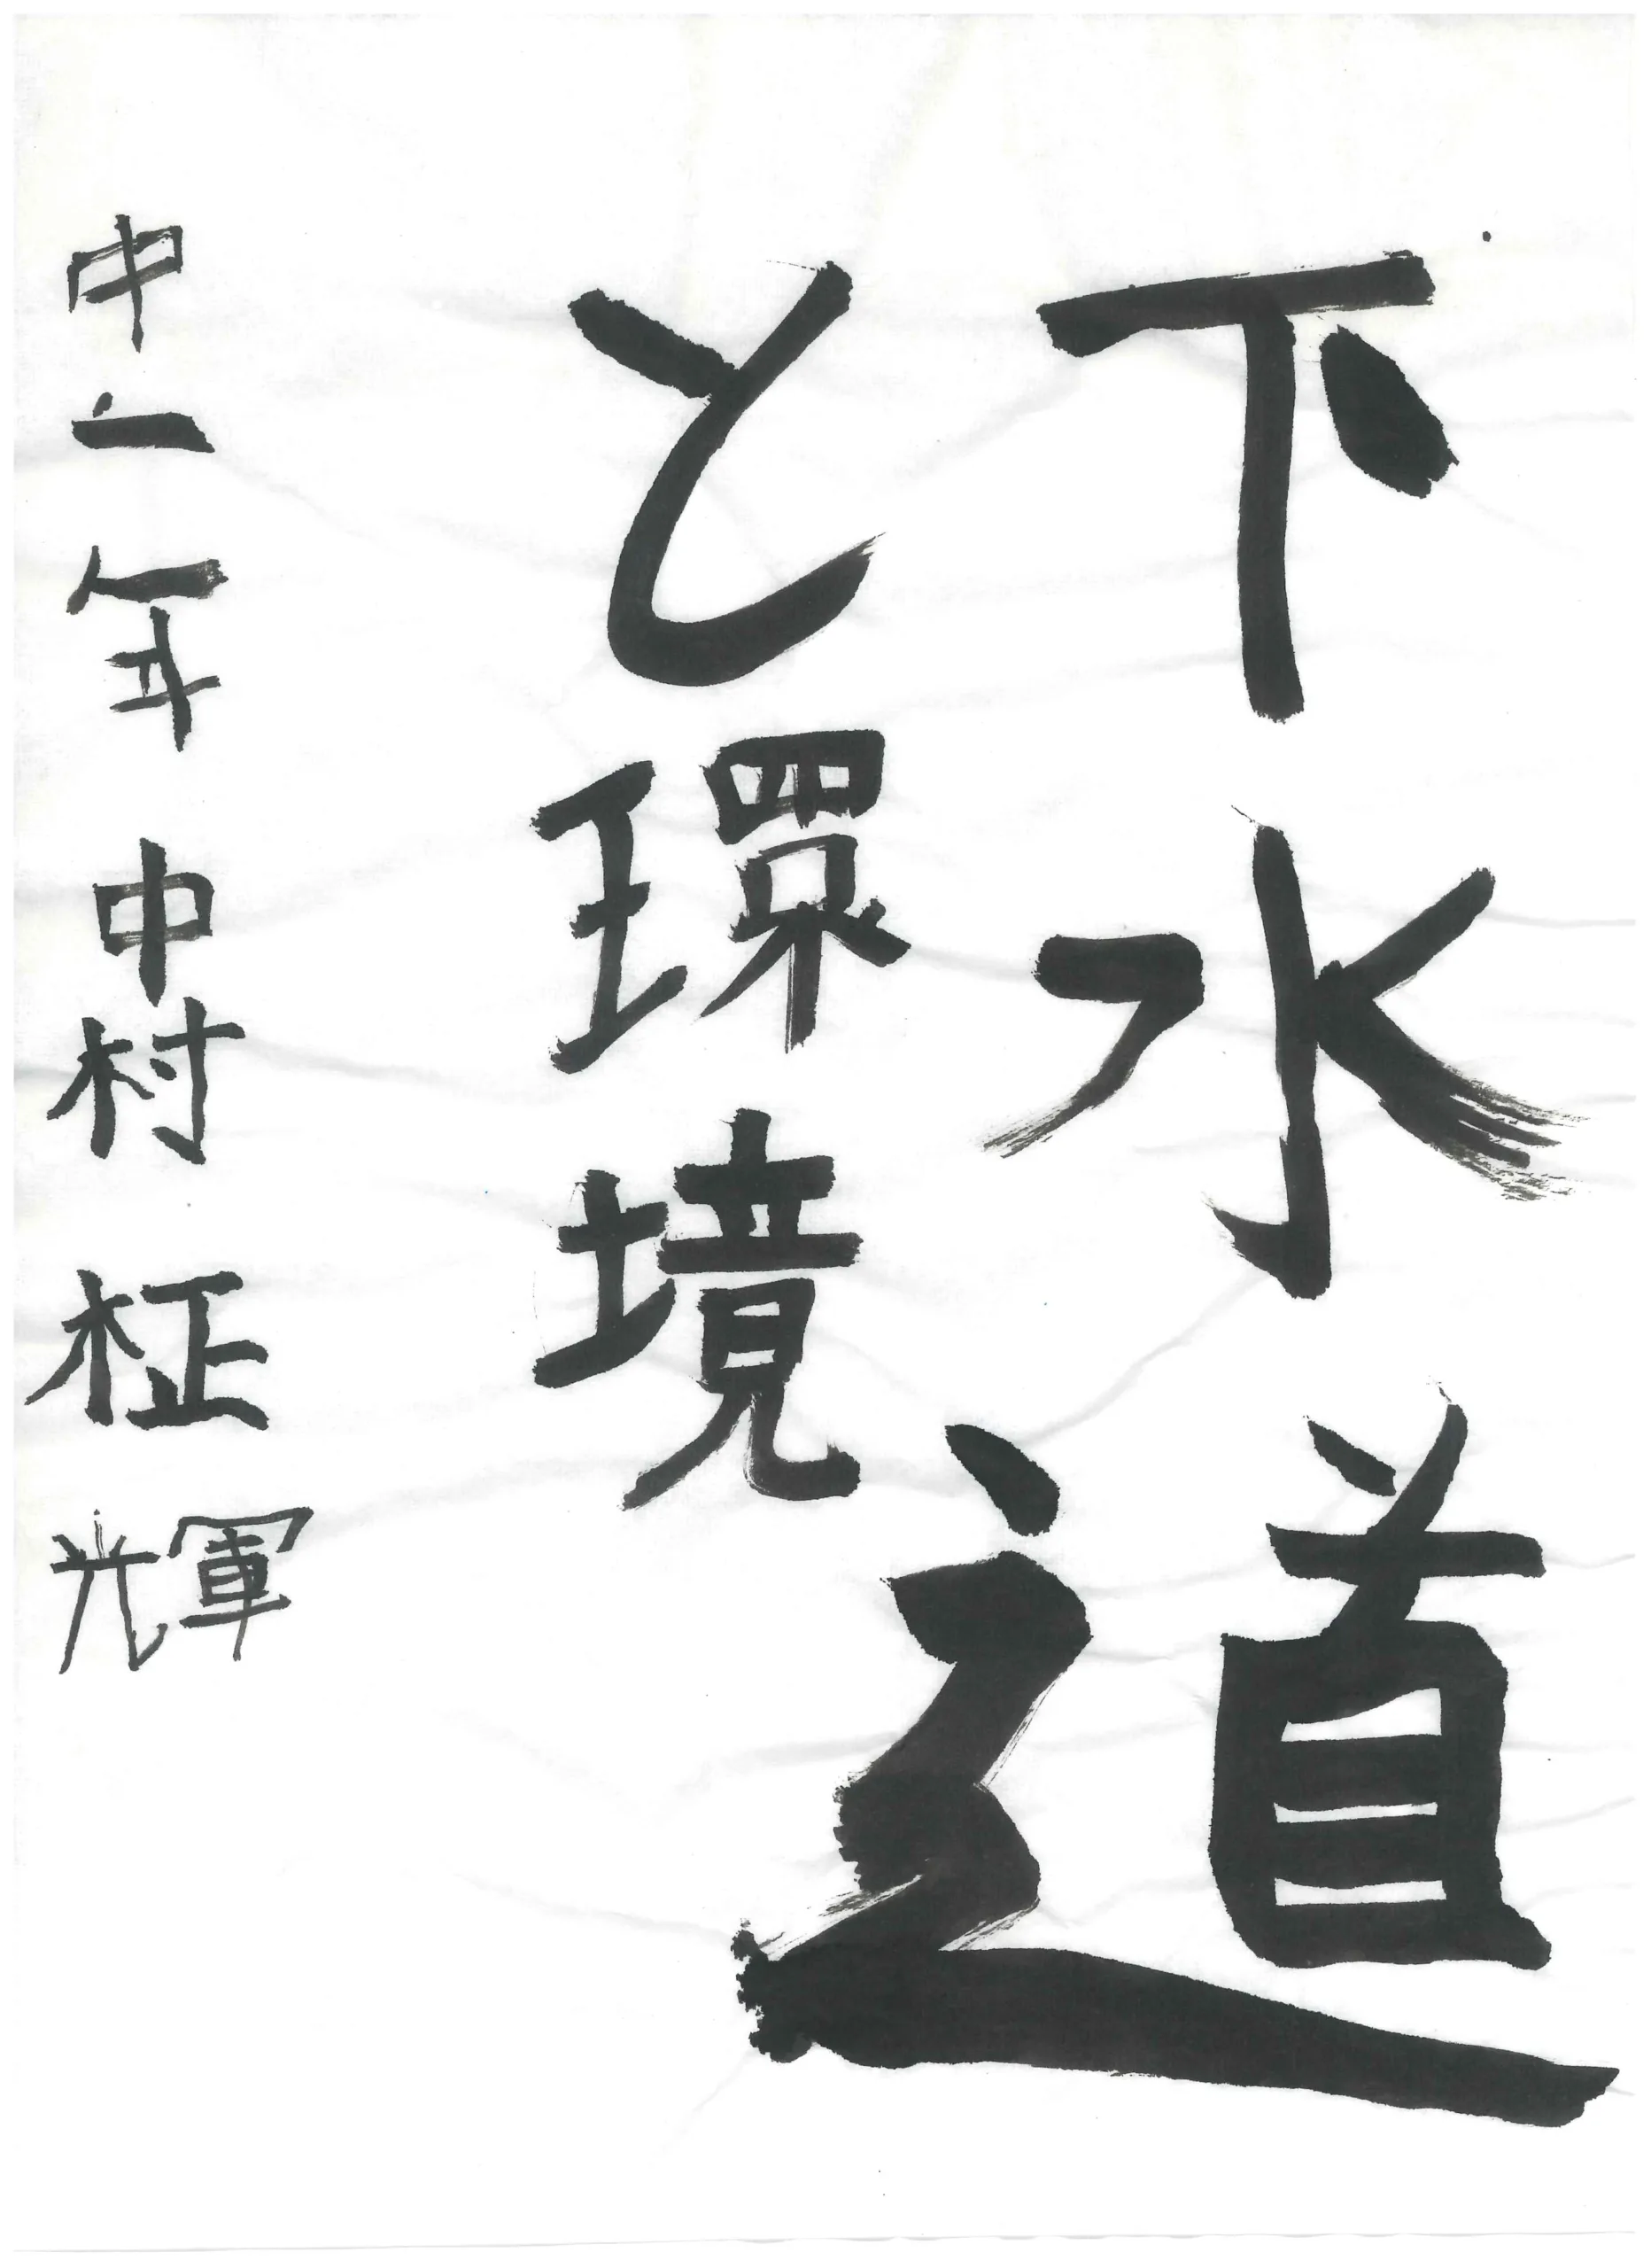 下水道
と環境
中一年 中村 柾輝